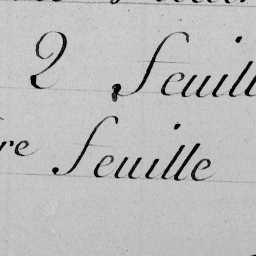 2 Feuill
re Feuille